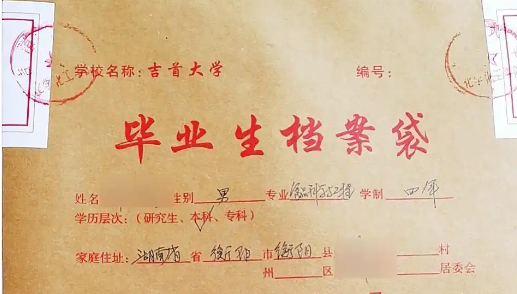 学校名称：吉首大学 编号：
毕业生档案袋
姓名 性别 男 专业 食品科学与工程 学制 四年
学历层次：（研究生、本科、专科）
家庭住址：湖南省 省 衡阳 市 衡阳 县 村
州 区 居委会